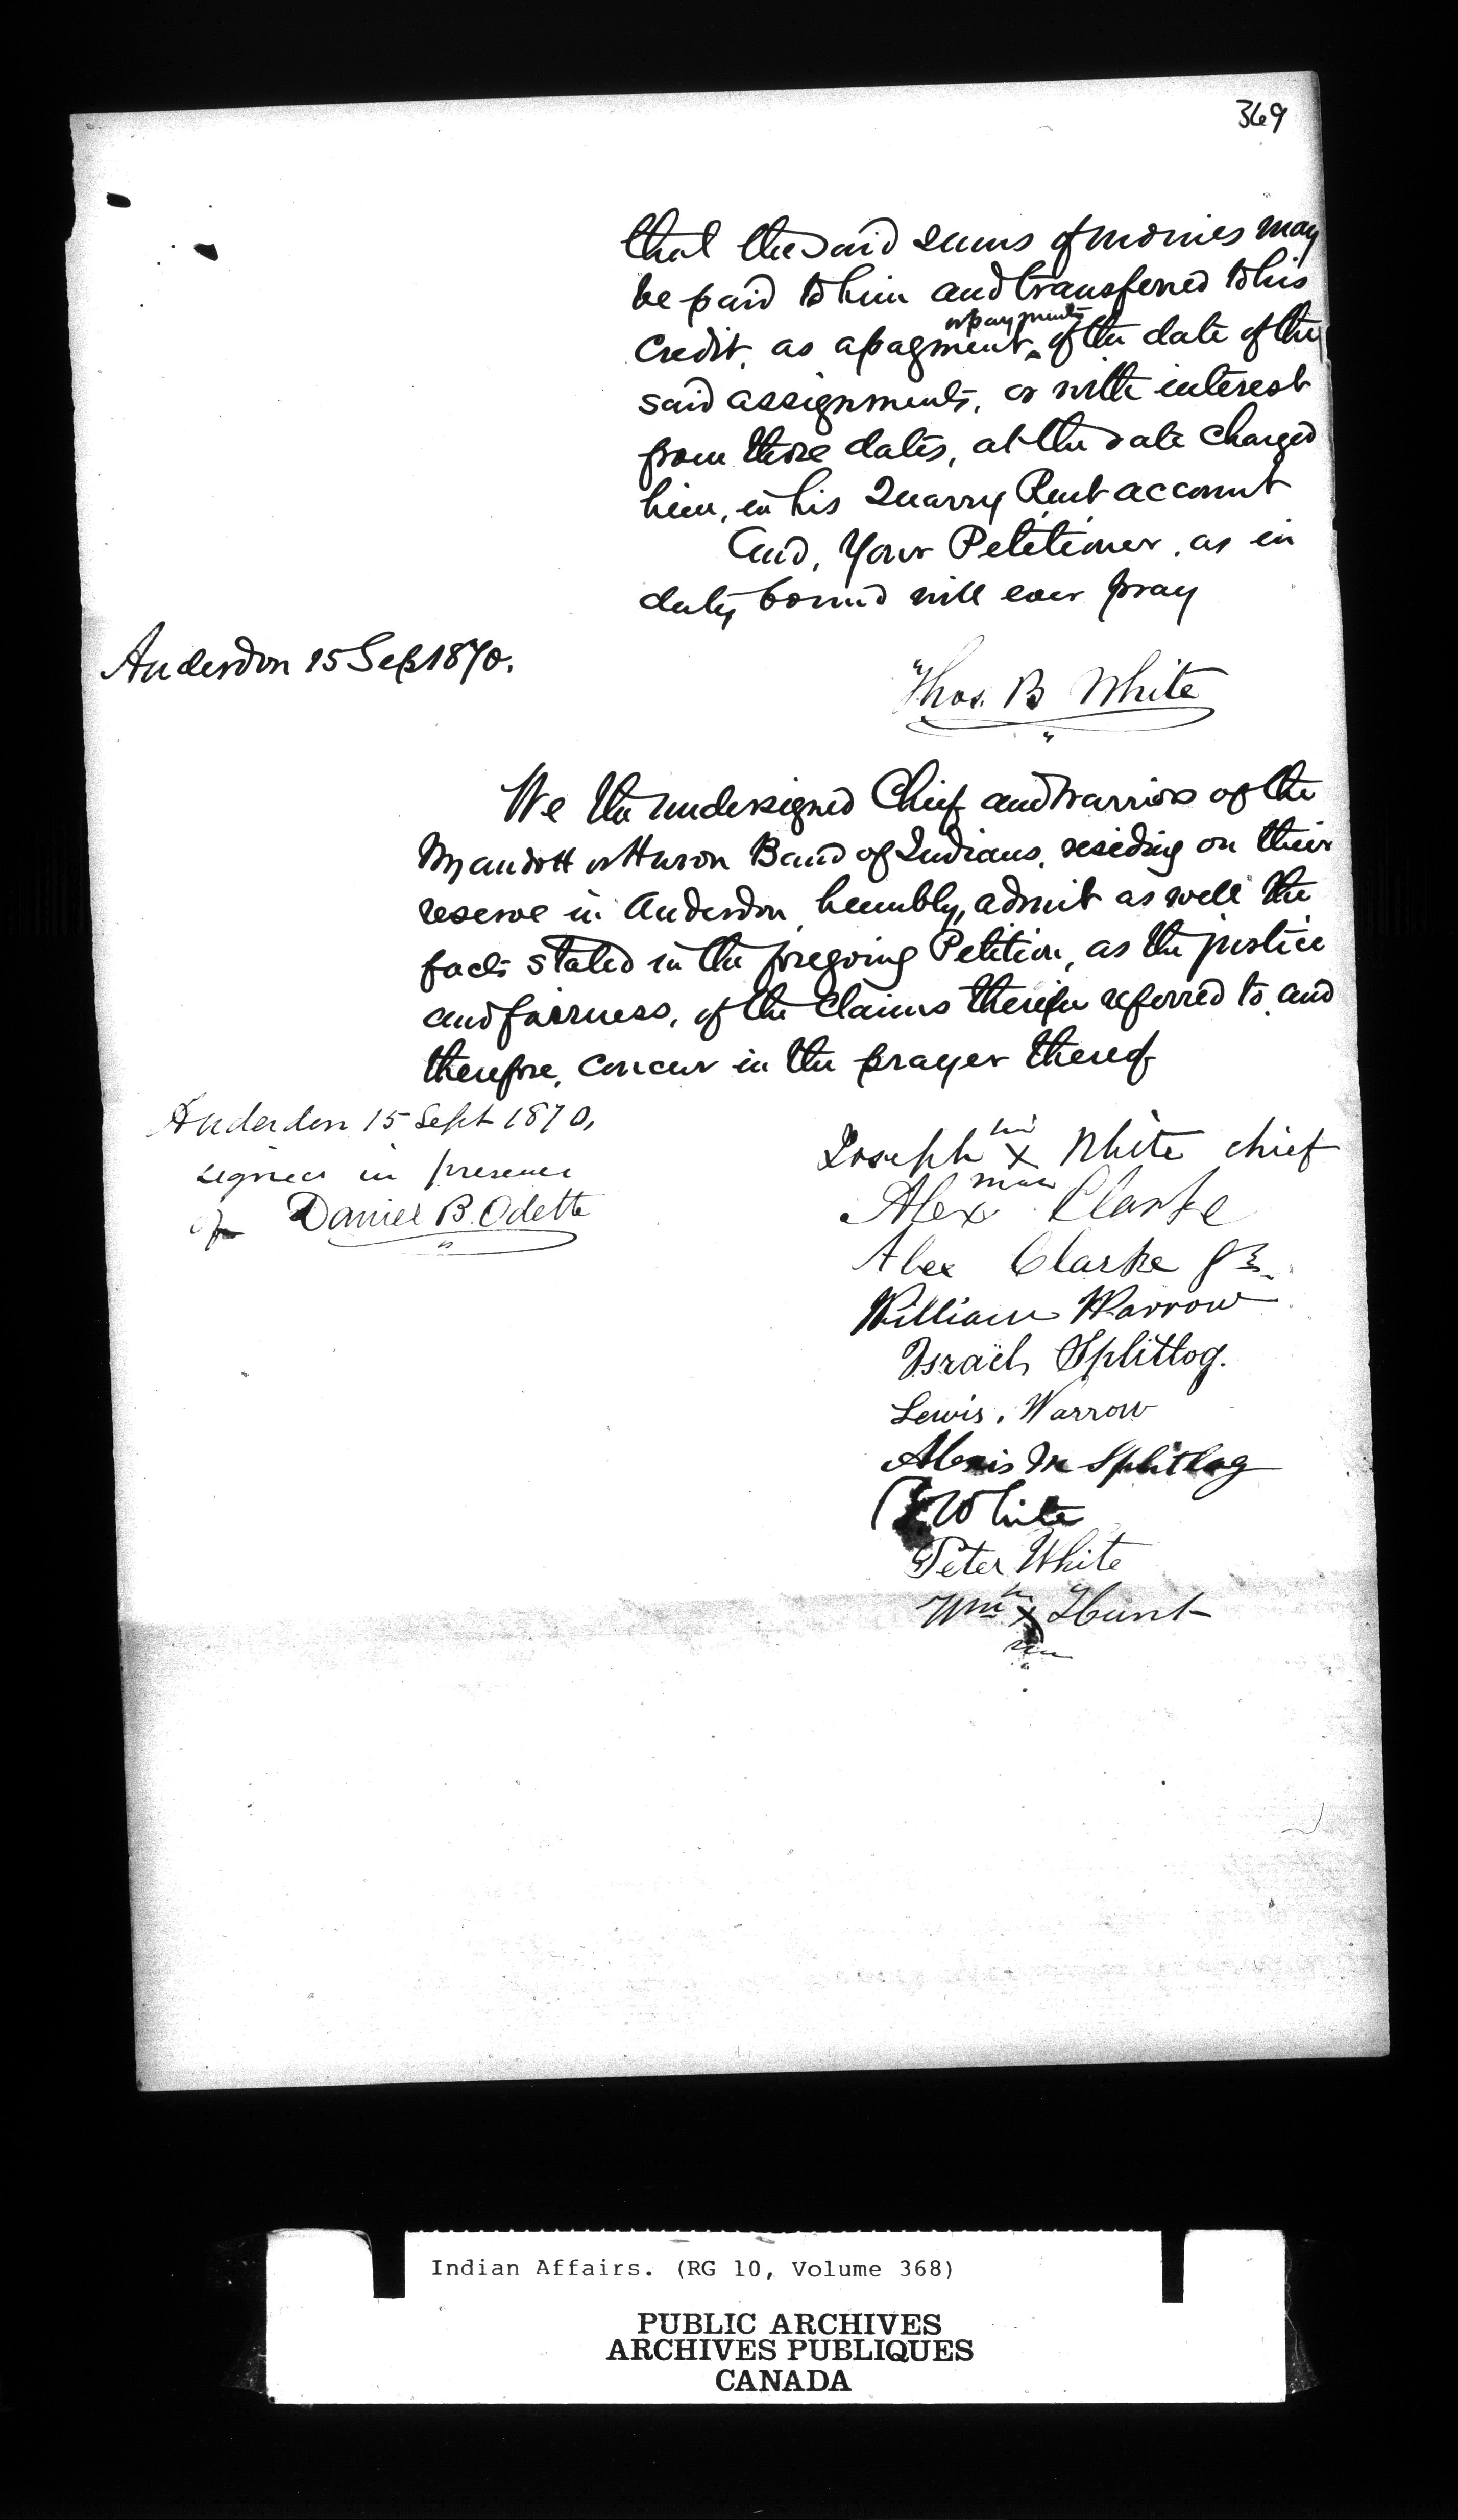 369
that the said sums of monies may
be paid to him and transferred to his
or payments
credit, as a payment ^ of the date of the
said assignments, or with interest
from those dates, at the rate charged
him, in his Quarry Rent account
And, Your Petitioner, as in
duty bound will ever pray
Anderdon 15 Sep 1870.
Thos. B White
We the undersigned Chief and warriors of the
Wyandott or Huron Band of Indians, residing on their
reserve in Anderdon, humbly, admit as well the
facts stated in the foregoing Petition, as the justice
and fairness, of the claims therein referred to, and
therefore, concur in the prayer thereof
Anderdon 15 Sept 1870,
signed in presence
of Daniel B. Odette
his
Joseph X White chief
mark
Alex Clarke
Alex Clarke Jr.
William Warrow
Israel Splitlog.
Lewis. Warrow
Alexis M Splitlog
White
Peter White
Wm X Hunt
Indian Affairs. (RG 10, Volume 368)
PUBLIC ARCHIVES
ARCHIVES PUBLIQUES
CANADA